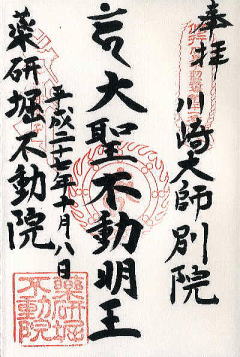 奉拝
川崎大師別院
大聖不動明王
平成二十七年十月八日
薬研堀不動院
薬研堀不動院